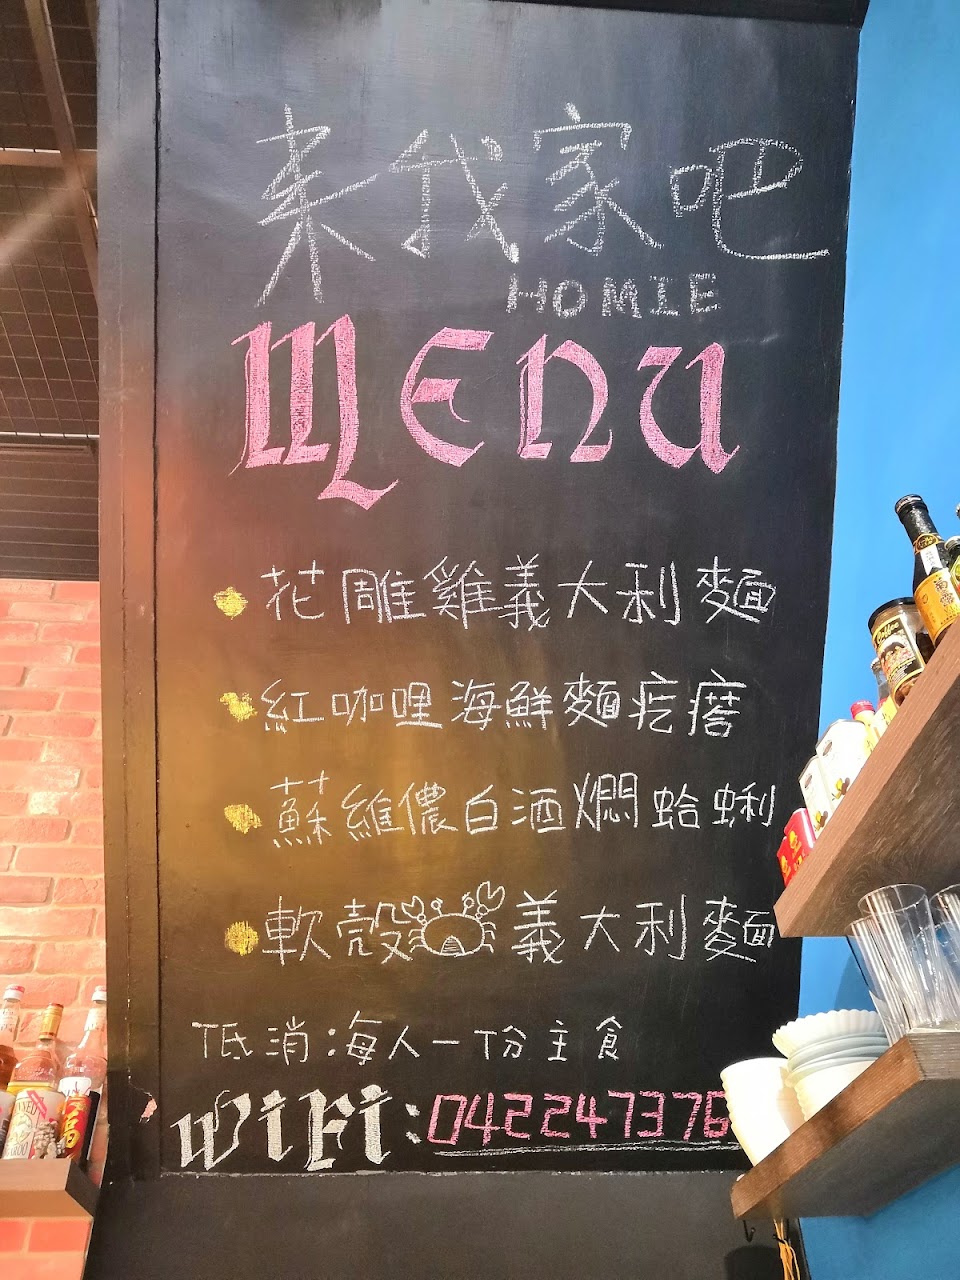 来我家吧
HOMIE
MENU
花雕雞義大利麵
紅咖哩海鮮麵疙瘩
蘇維儂白酒燜蛤蜊
軟殼義大利麵
低消:每人一份主食
WiFi:042247376